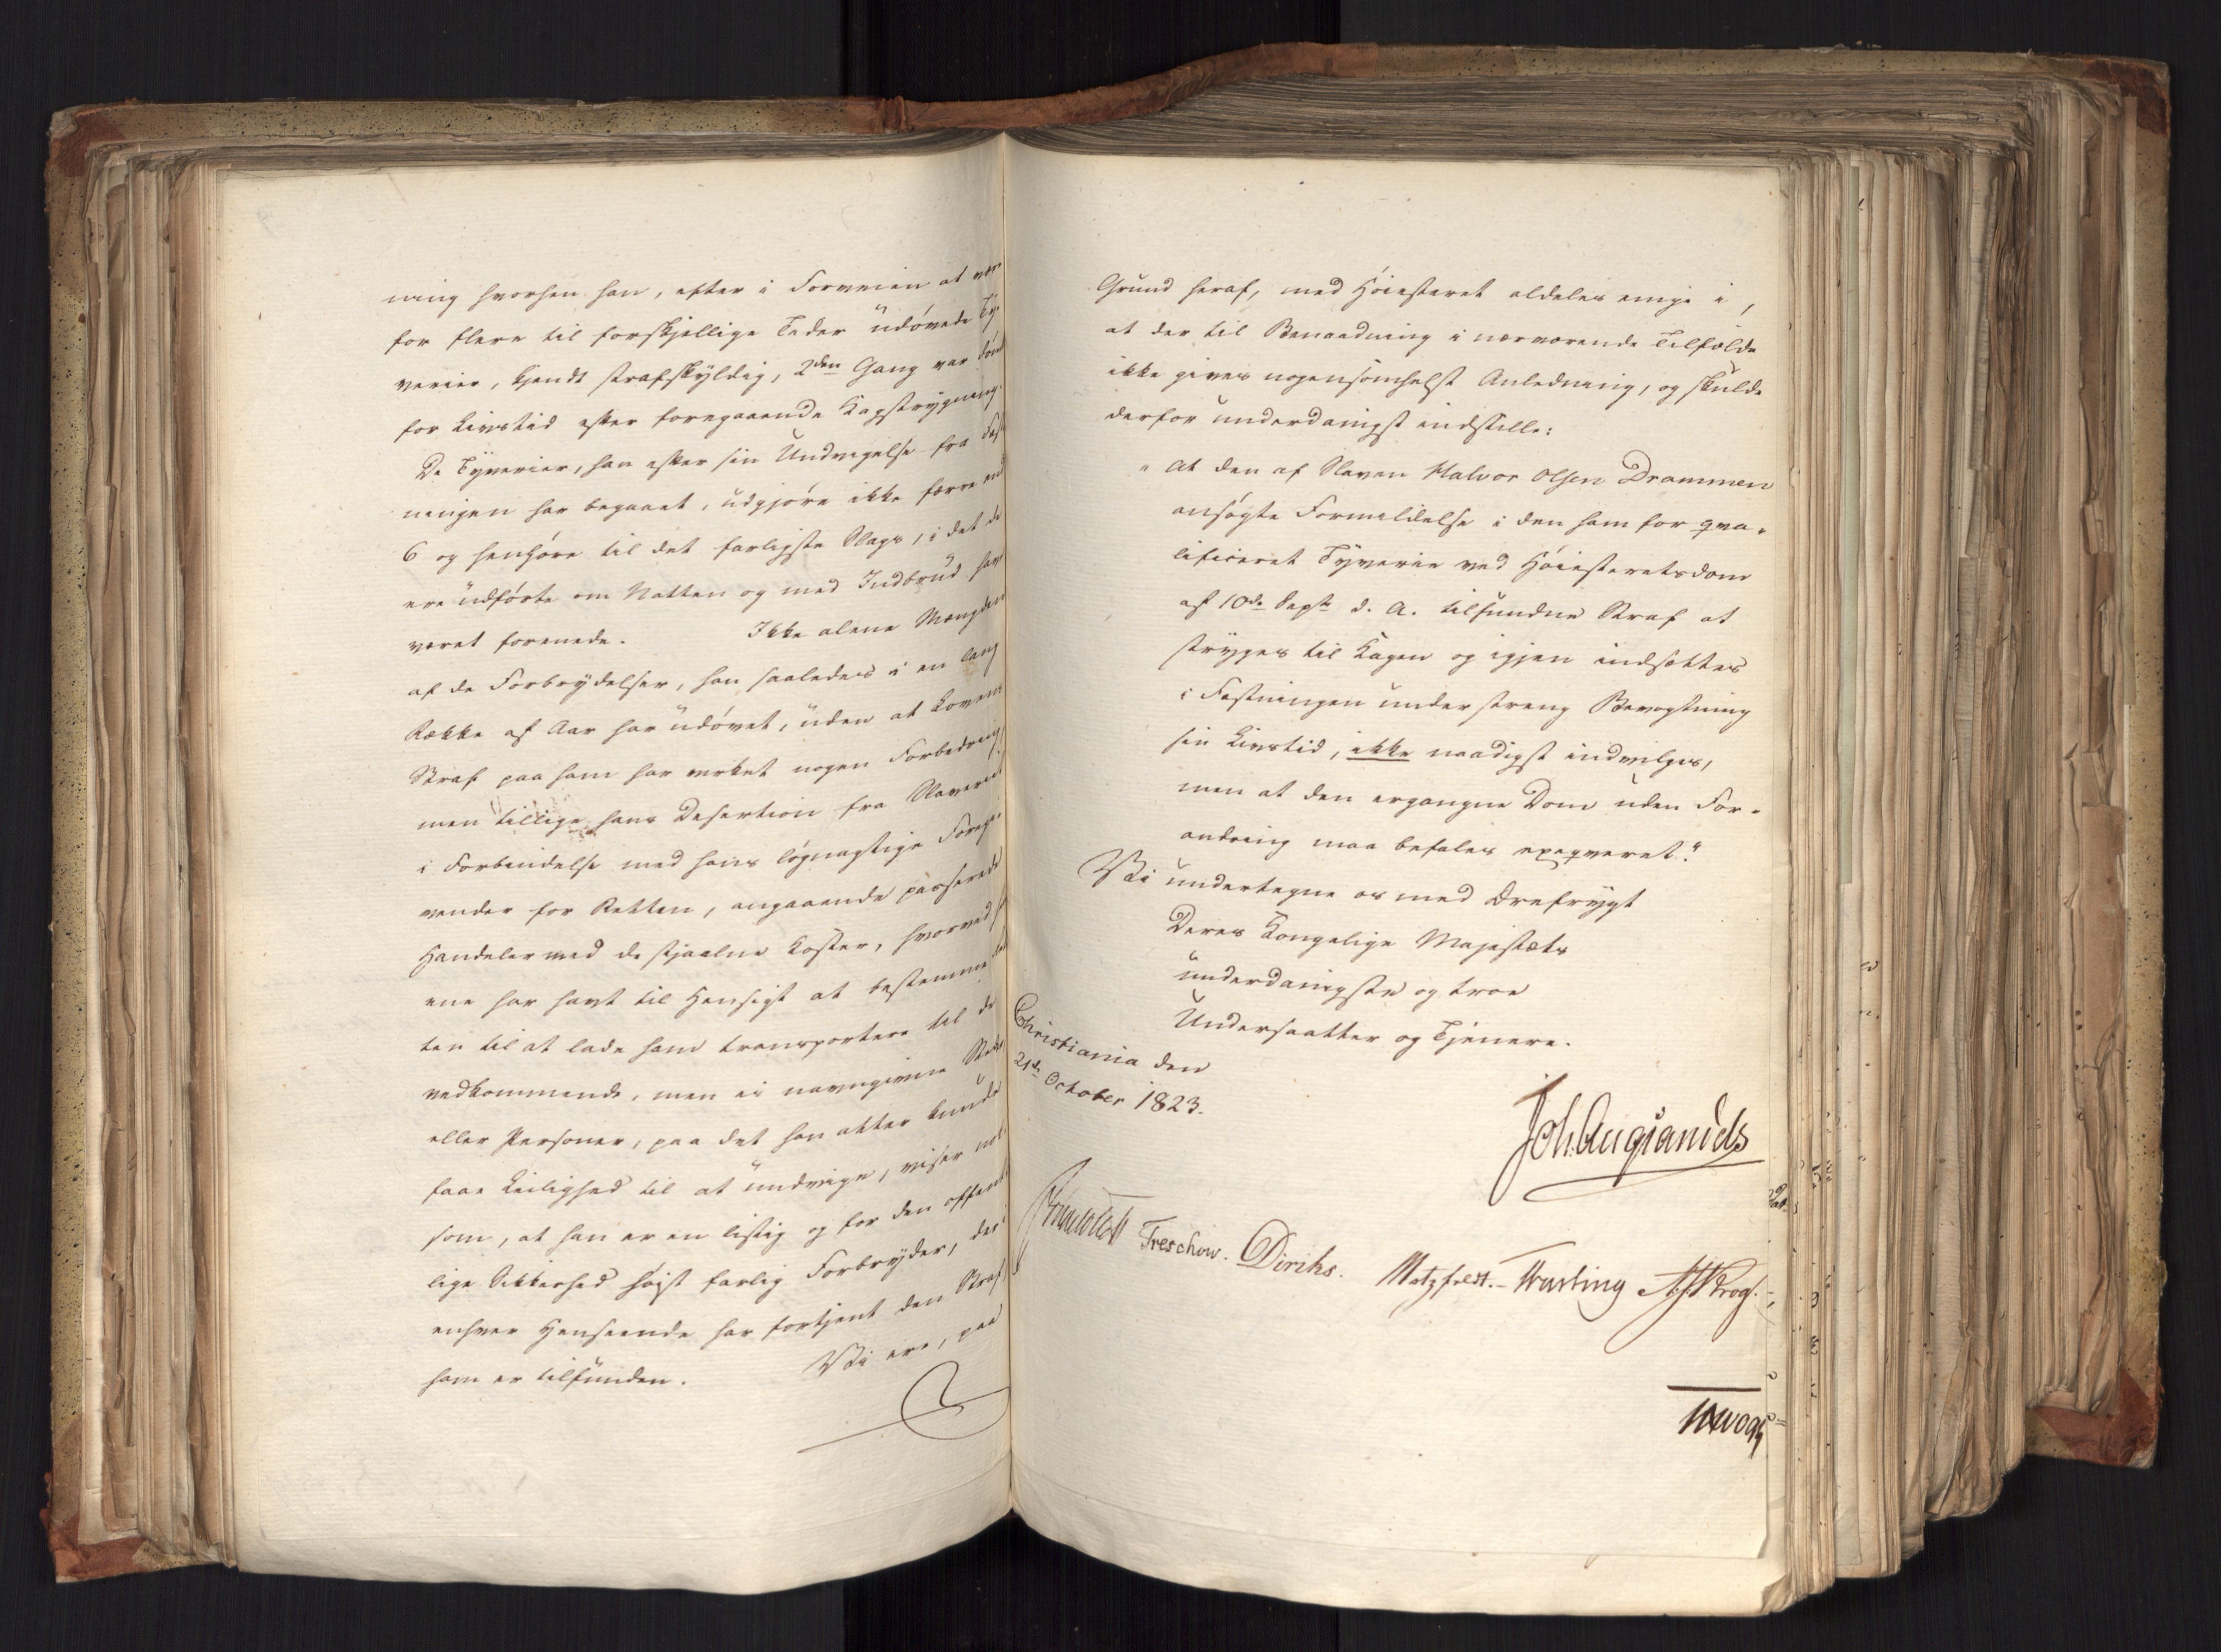 ning hvorhen han, efter i Forveien at være
for flere til forskjellige Tider udövede Ty-
verier, kjendt strafskyldig, 2den Gang var dömt
for Livstid efter foregaaende Kagstrygning.
De Tyverier, han efter sin Undvigelse fra Fæst-
ningen har begaaet, udgjöre ikke færre end
6 og henhöre til det farligste Slags, i det de
ere udförte om Natten og med Indbrud have
været forenede. Ikke alene Mængden
af de Forbrydelser, han saaledes i en lang
Række af Aar har udövet, uden at Lovens
Straf paa ham har virket nogen Forbedring,
men tillige hans Desertion fra Slaveriet
i Forbindelse med hans lögnagtige Foregi-
vender for Retten, angaaende passerede
Handeler med de stjaalne Koster, hvorved
ene har havt til Hensigt at bestemme
ten til at lade ham transportere til de
vedkommende, men ei navngivne Steder
eller Personer, paa det han atter kunde
faae Leilighed til at undvige, viser nok-
som, at han er en listig og for den offent-
lige Sikkerhed höist farlig Forbryder, der i
enhver Henseende har fortjent den Straf
ham er tilfunden. Vi ere, paa
Grund heraf, med Höiesteret aldeles enige i,
at der til Benaadning i nærværende Tilfælde
ikke gives nogensomhelst Anledning, og skulde
derfor underdanigst indstille:
"At den af Slaven Halvor Olsen Drammen
ansögte Formildelse i den ham for qva-
lificeret Tyverie ved Höiesteretsdom
af 10de Septr d. A. tilfundne Straf at
stryges til Kagen og igjen indsættes
i Fæstningen under streng Bevogtning
sin Livstid, ikke naadigst indvilges,
men at den ergangne Dom uden For-
andring maa befales exeqveret."
Vi undertegne os med Ærefrygt
Deres Kongelige Majestæts
underdanigste og troe
Undersaatter og Tjenere.
Christiania den
21de October 1823.
Joh. Aug. Sandels
Treschow. Diriks. Motzfeldt. Fasting